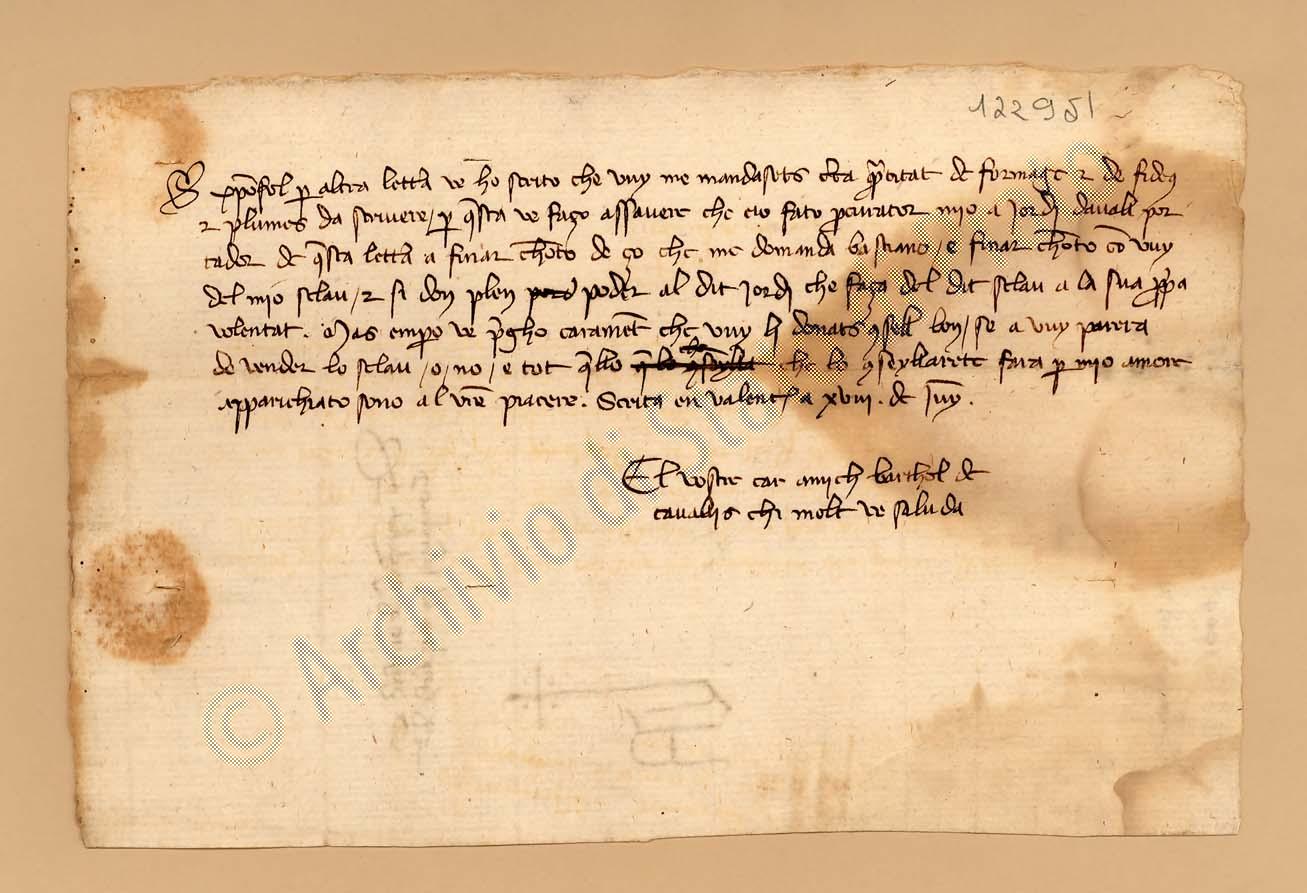 122951
S xpofol p altra lettra ve ho scrito che vuy me mandasets certa quantitat de formage & de fideus
& plumes da scrivere / p questa ve faço assavere che eio fato procurator mio a Jordi davall por
tador de questa lettra a finar chonto de ço che me domanda bastiano / e finar chonto con vuy
del mio sclau / & si don plen poder al dit Jordi che faça del dit sclau a la sua propia
volentat . Mas empero ve pregho carament che vuy li donats consell bon / se a vuy parera
de vender lo sclau / o / no / e tot quello che lo conseyllarete fara p mio amore
Apparichiato sono al vostre piacere . Scrita en valença a xviii . de Juny .
El vostre car amich barthol de
cavalls chi molt ve saluda
© Archivio di Stato